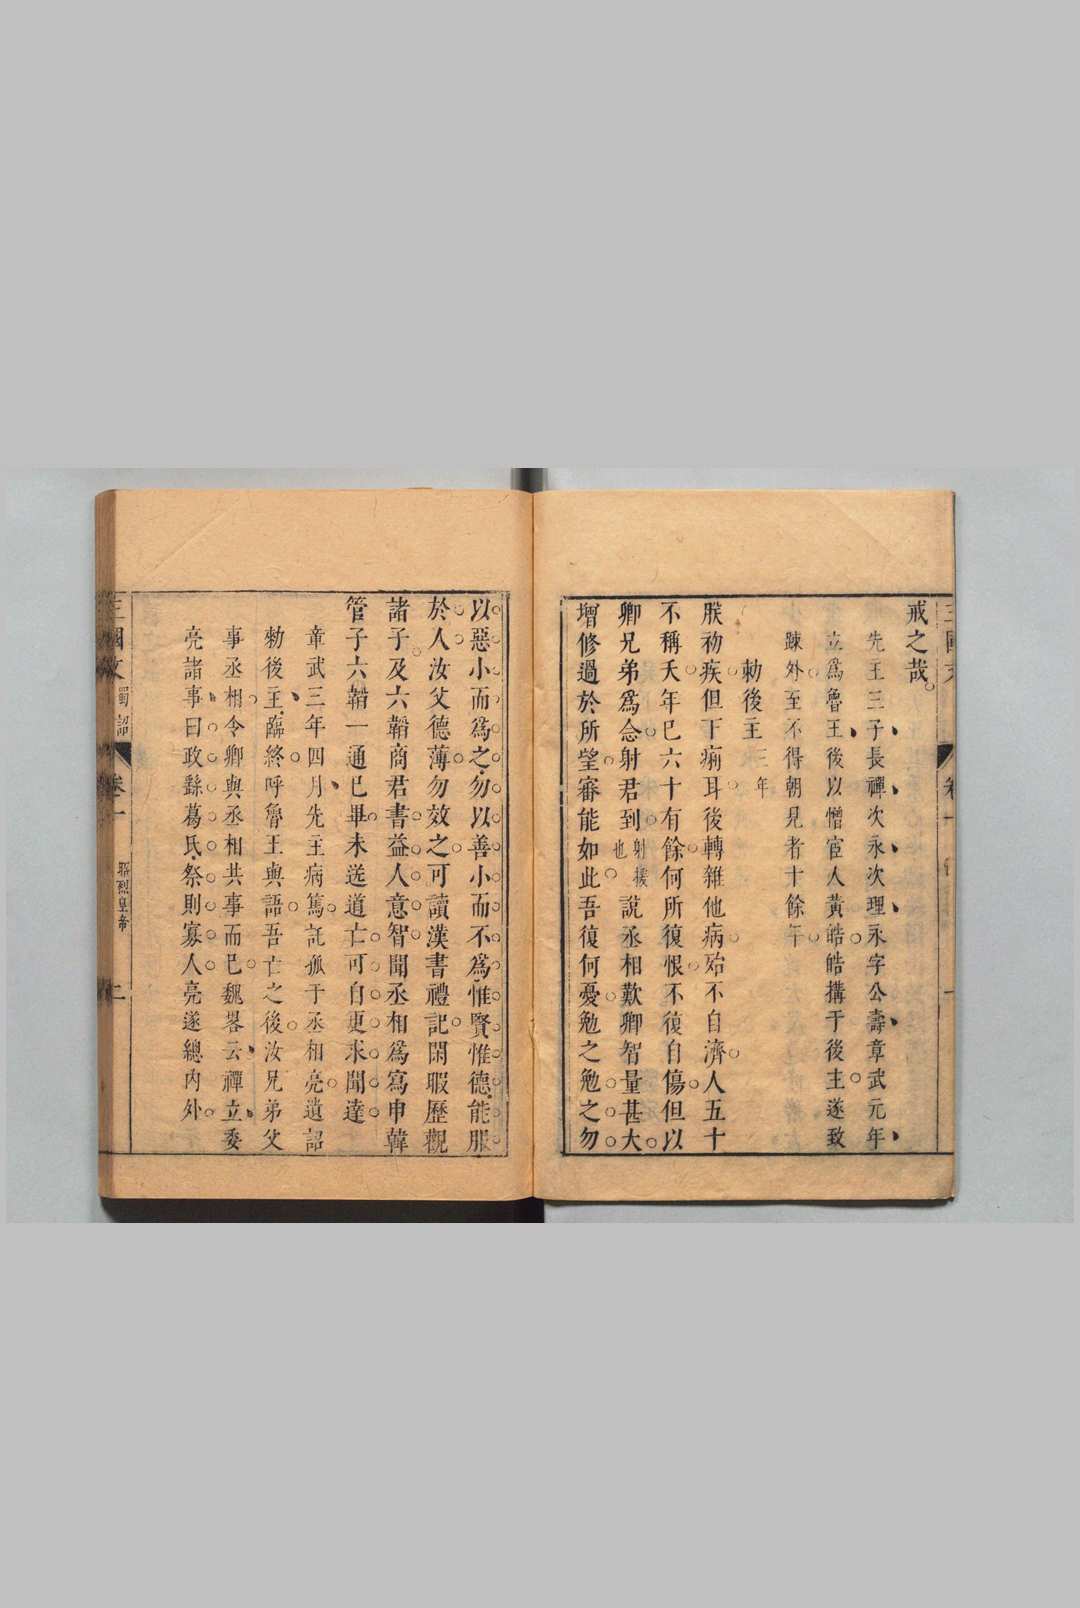 戒之哉
先主三子長禪次永次理永字公壽章武元年
立爲魯王後以憎宦人黃皓皓搆于後主遂致
踈外至不得朝見者十餘年
勑後主三年
朕初疾但下痢耳後轉雜他病殆不自濟人五十
不稱夭年已六十有餘何所復恨不復自傷但以
卿兄弟爲念射君到射援也說丞相歎卿智量甚大
增修過於所望審能如此吾復何憂勉之勉之勿
以惡小而爲之勿以善小而不爲惟賢惟德能服
於人汝父德薄勿效之可讀漢書禮記閑暇歷觀
諸子及六韜商君書益人意智聞丞相爲寫申韓
管子六韜一通已畢未送道亡可自更求聞達
章武三年四月先主病篤託孤于丞相亮遺詔
勑後主臨終呼魯王與語吾亡之後汝兄弟父
事丞相令卿與丞相共事而已魏畧云禪立委
亮諸事曰政繇葛氏祭則寡人亮遂總內外
三國文 蜀詔 卷一 昭烈皇帝 二